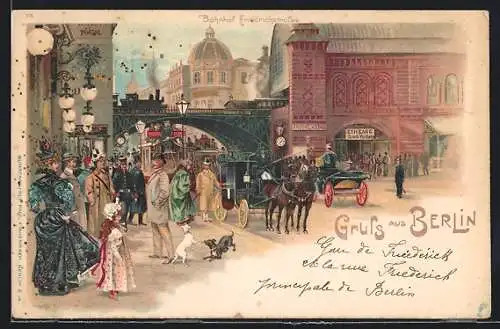 Bahnhof Friedrichstrasse
EINGANG
Gruss aus BERLIN
Gare de Friederick
et la rue Friederick
principale de Berlin